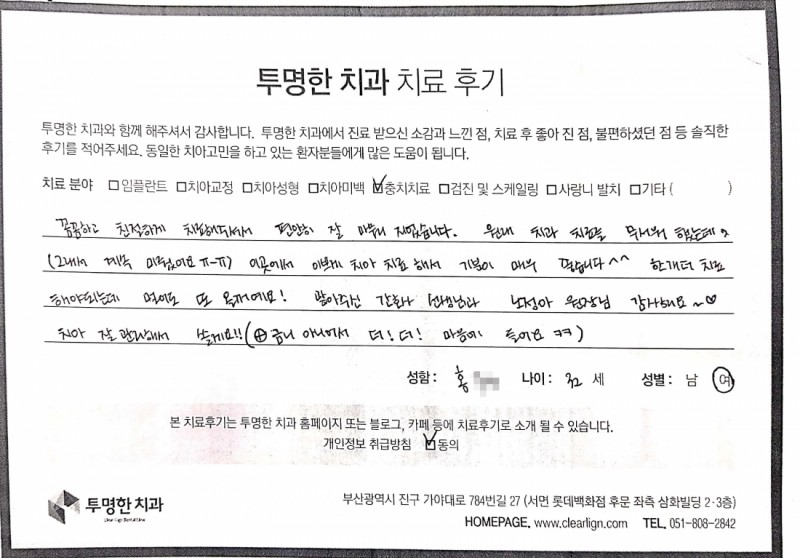 투명한 치과 치료 후기
투명한 치과와 함께 해주셔서 감사합니다. 투명한 치과에서 진료 받으신 소감과 느낀 점, 치료 후 좋아 진 점, 불편하셨던 점 등 솔직한
후기를 적어주세요. 동일한 치아고민을 하고 있는 환자분들에게 많은 도움이 됩니다.
치료 분야 □임플란트 □치아교정 □치아성형 □치아미백 ☑충치치료 □검진 및 스케일링 □사랑니 발치 □기타 ( )
꼼꼼하고 친절하게 치료해주셔서 편안히 잘 마무리 지었습니다. 원래 치과 치료를 무서워 했는데
(그래서 계속 미뤘어요 ㅠ-ㅠ) 이곳에서 이쁘게 치아 치료 해서 기분이 매우 좋습니다^^ 한개더 치료
해야되는데 먹이도 또 올꺼에요! 맡아주신 간호사 선생님과 노정아 원장님 감사해요~♡
치아 잘 관리해서 쓸게요!! (⊕ 금니 아니어서 더! 더! 마음에 들어요 ㅋㅋ)
성함 : 홍 나이 : 32 세 성별 : 남 여
본 치료후기는 투명한 치과 홈페이지 또는 블로그, 카페 등에 치료후기로 소개 될 수 있습니다.
개인정보 취급방침 ☑동의
투명한 치과
부산광역시 진구 가야대로 784번길 27 (서면 롯데백화점 후문 좌측 삼화빌딩 2·3층)
HOMEPAGE. www.clearlign.com TEL. 051-808-2842